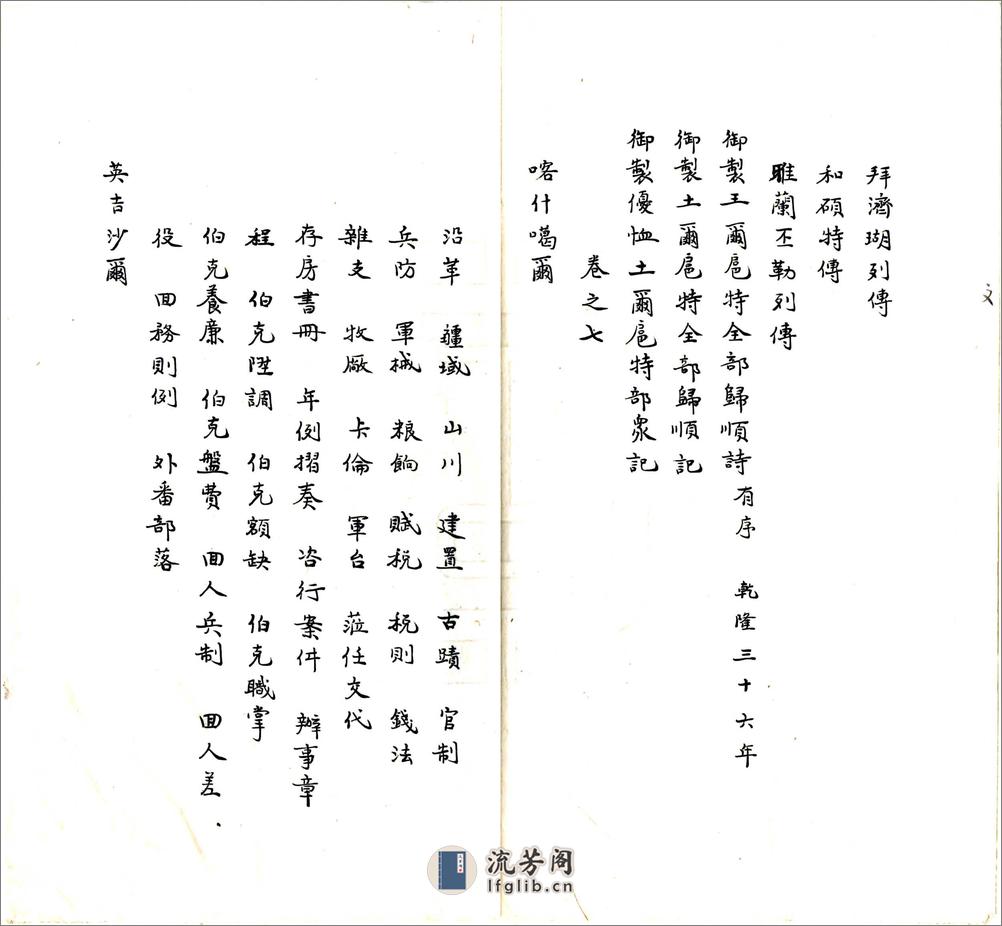 拜濟瑚列傳
和碩特傳
雅蘭丕勒列傳
御製王爾扈特全部歸順詩 有序 乾隆三十六年
御製土爾扈特全部歸順記
御製優恤土爾扈特部衆記
卷之七
喀什噶爾
沿革 疆域 山川 建置 古蹟 官制
兵防 軍械 粮餉 賦税 税則 錢法
雜支 牧廠 卡倫 軍台 蒞任交代
存房書冊 年例摺奏 咨行案件 辦事章
程 伯克陞調 伯克額缺 伯克職掌
伯克養廉 伯克盤費 回人兵制 回人差
役 回務則例 外番部落
英吉沙爾
流芳阁
lfglib.cn